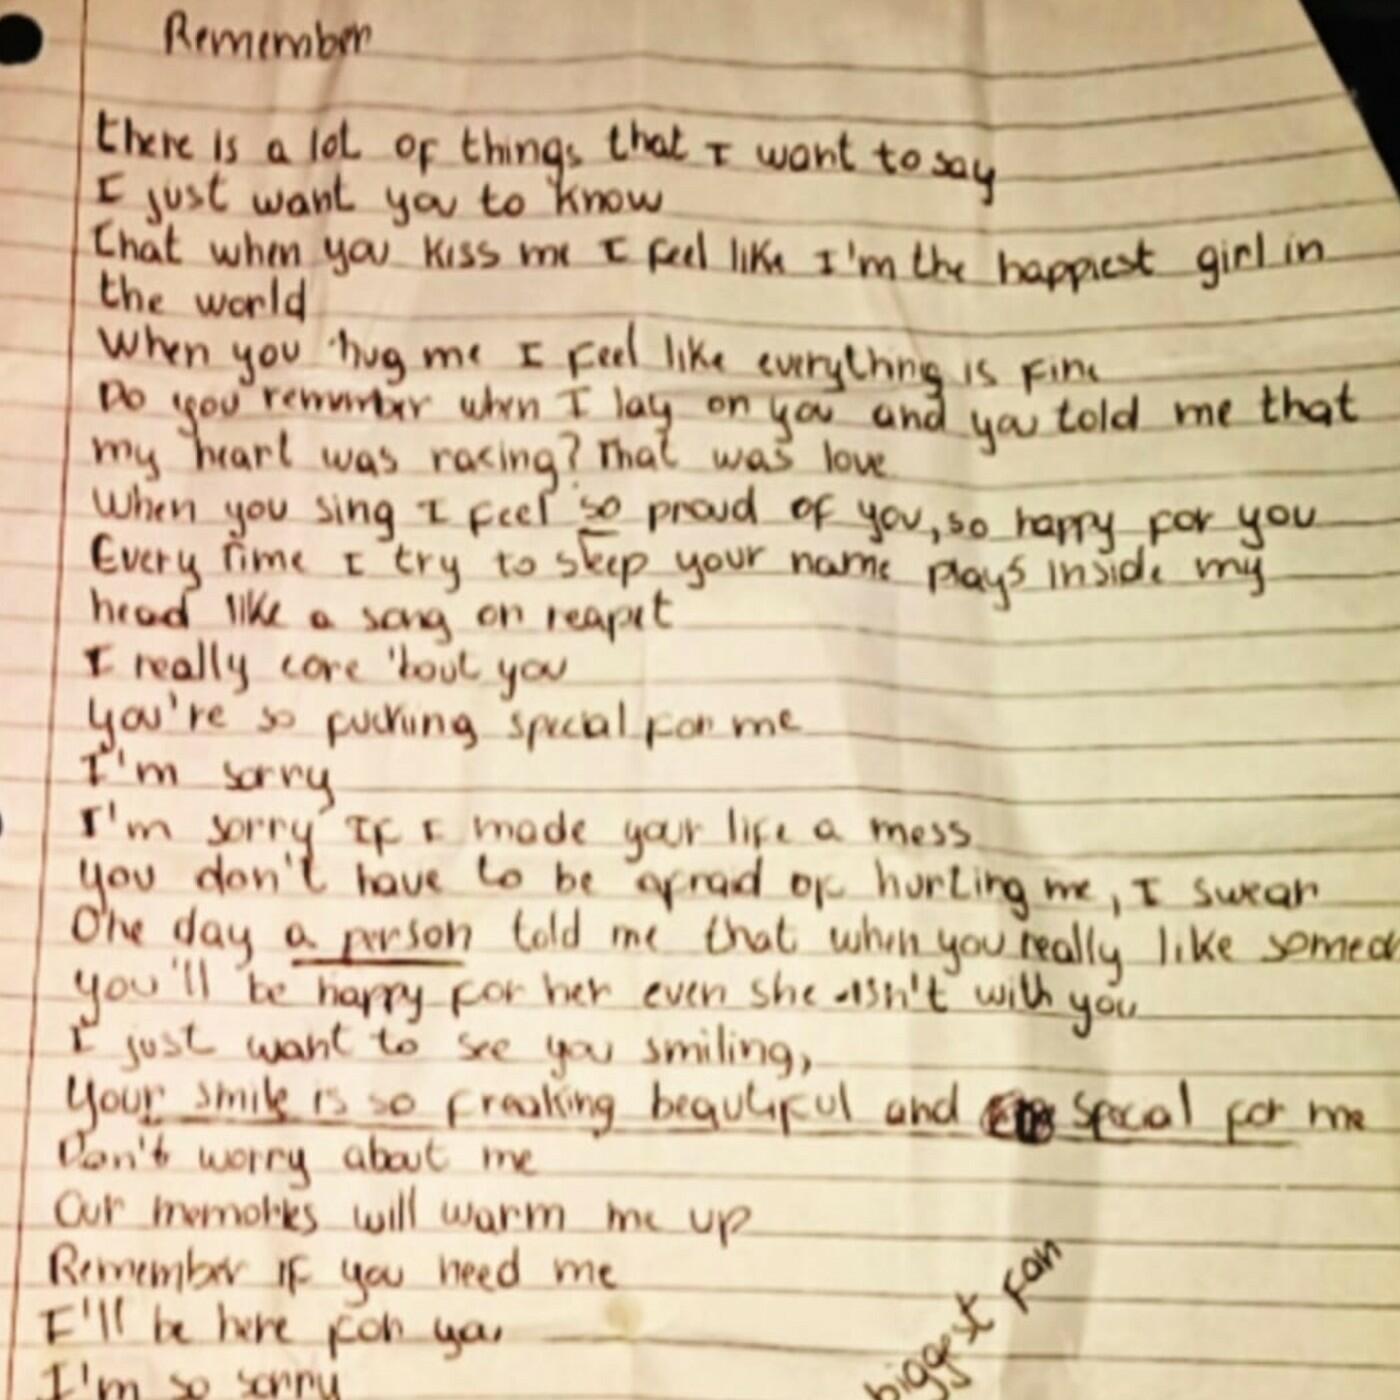 Remember
there is a lot of things that I want to say
I just want you to know
that when you kiss me I feel like I'm the happiest girl in
the world
When you hug me I feel like everything is fine
Do you remember when I lay on you and you told me that
my heart was racing? That was love
When you sing I feel so proud of you, so happy for you
Every time I try to sleep your name plays inside my
head like a song on reapet
I really care 'bout you
You're so fucking special for me
I'm sorry
I'm sorry If I made your life a mess
You don't have to be afraid of hurting me, I swear
One day a person told me that when you really like
you'll be happy for her even she isn't with you
I just want to see you smiling,
Your smile is so freaking beautiful and special for me
Don't worry about me
Our memories will warm me up
Remember if you need me
I'll be here for you
I'm so sorry
biggest fan